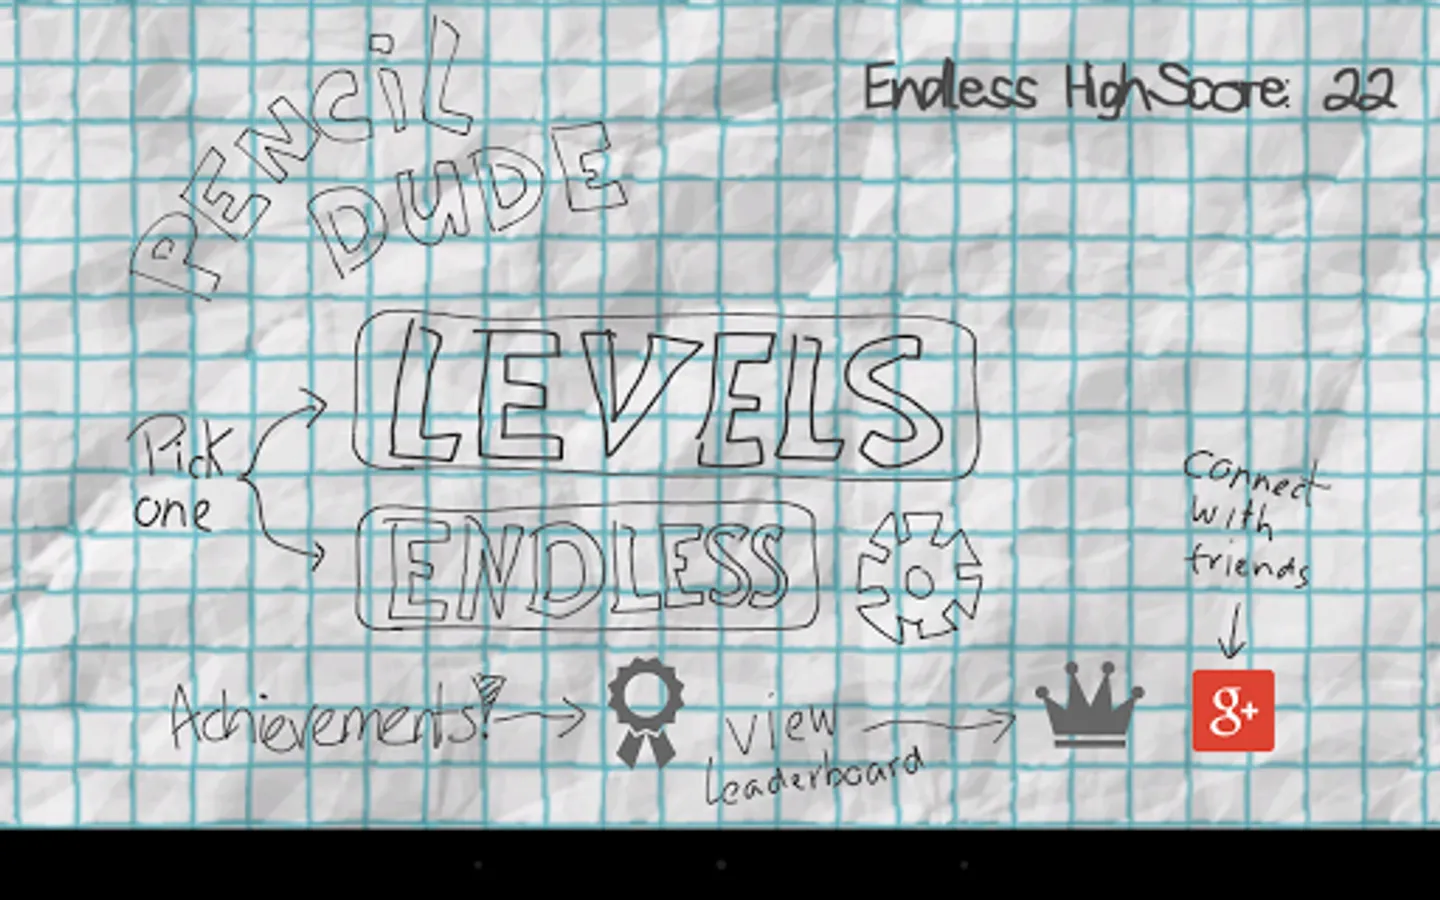 PENCiL
DUDE
Endless HighScore: 22
LEVELS
Pick
one
ENDLESS
connect
with
friends
Achievements!
view
leaderboard
g+